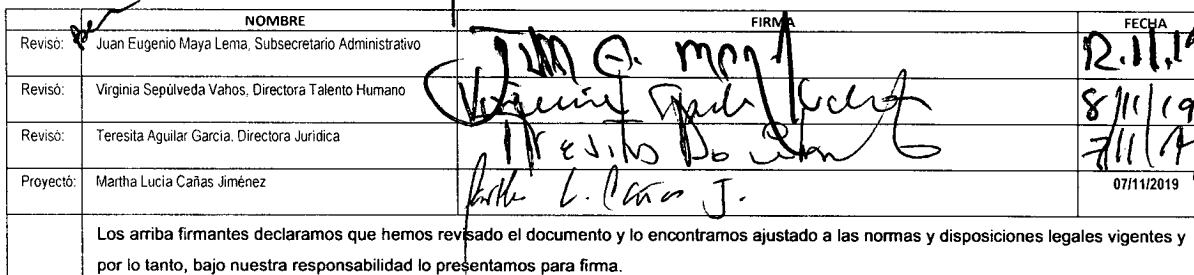 NOMBRE FIRMA FECHA
Revisó: Juan Eugenio Maya Lema, Subsecretario Administrativo 12.11.19
Revisó: Virginia Sepúlveda Vahos, Directora Talento Humano 8/11/19
Revisó: Teresita Aguilar García. Directora Jurídica 7/11/19
Proyectó: Martha Lucia Cañas Jiménez Martha L. Cañas J. 07/11/2019
Los arriba firmantes declaramos que hemos revisado el documento y lo encontramos ajustado a las normas y disposiciones legales vigentes y
por lo tanto, bajo nuestra responsabilidad lo presentamos para firma.